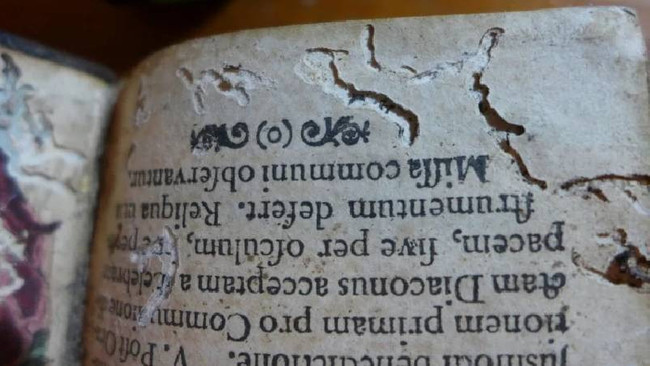 juſmodi benedictione. V. Poſt
tionem primam pro Communione
ctam Diaconus acceptam a Celebran
pacem, ſive per oſculum,
ſtrumentum defert. Reliqua ut in
Miſſa communi obſervantur.
(o)